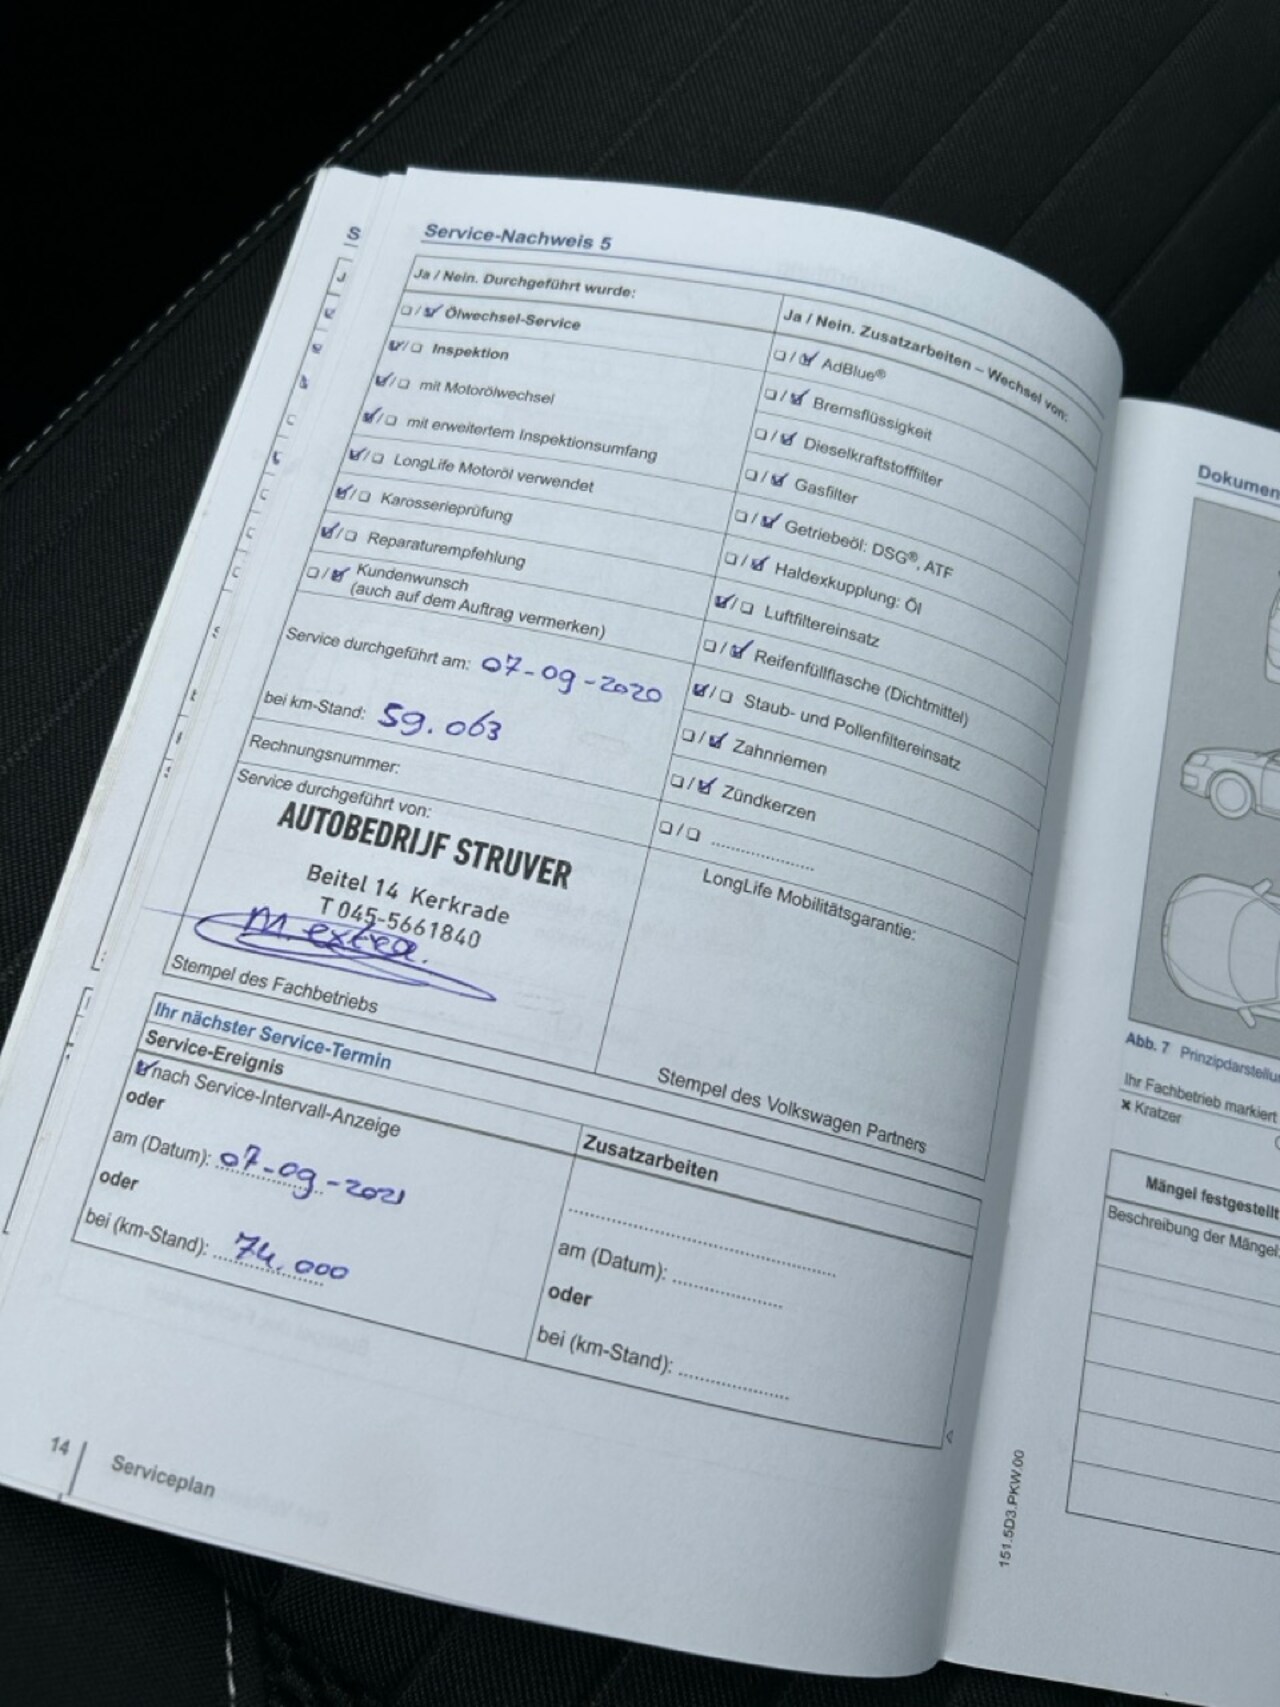 Service-Nachweis 5
Ja / Nein. Durchgeführt wurde:
Ölwechsel-Service
Inspektion
mit Motorölwechsel
mit erweitertem Inspektionsumfang
LongLife Motoröl verwendet
Karosserieprüfung
Reparaturempfehlung
Kundenwunsch
(auch auf dem Auftrag vermerken)
Service durchgeführt am: 07-09-2020
bei km-Stand: 59.063
Rechnungsnummer:
Service durchgeführt von:
AUTOBEDRIJF STRUVER
Beitel 14 Kerkrade
T 045-5661840
M. extra.
Stempel des Fachbetriebs
Ja / Nein. Zusatzarbeiten – Wechsel von:
AdBlue®
Bremsflüssigkeit
Dieselkraftstofffilter
Gasfilter
Getriebeöl: DSG®, ATF
Haldexkupplung: Öl
Luftfiltereinsatz
Reifenfüllflasche (Dichtmittel)
Staub- und Pollenfiltereinsatz
Zahnriemen
Zündkerzen
LongLife Mobilitätsgarantie:
Stempel des Volkswagen Partners
Ihr nächster Service-Termin
Service-Ereignis
nach Service-Intervall-Anzeige
oder
am (Datum): 07-09-2021
oder
bei (km-Stand): 74.000
Zusatzarbeiten
am (Datum):
oder
bei (km-Stand):
14
Serviceplan
151.5D3.PKW.00
Abb. 7
Ihr Fachbetrieb markiert
× Kratzer
Mängel festgestellt
Beschreibung der Mängel: